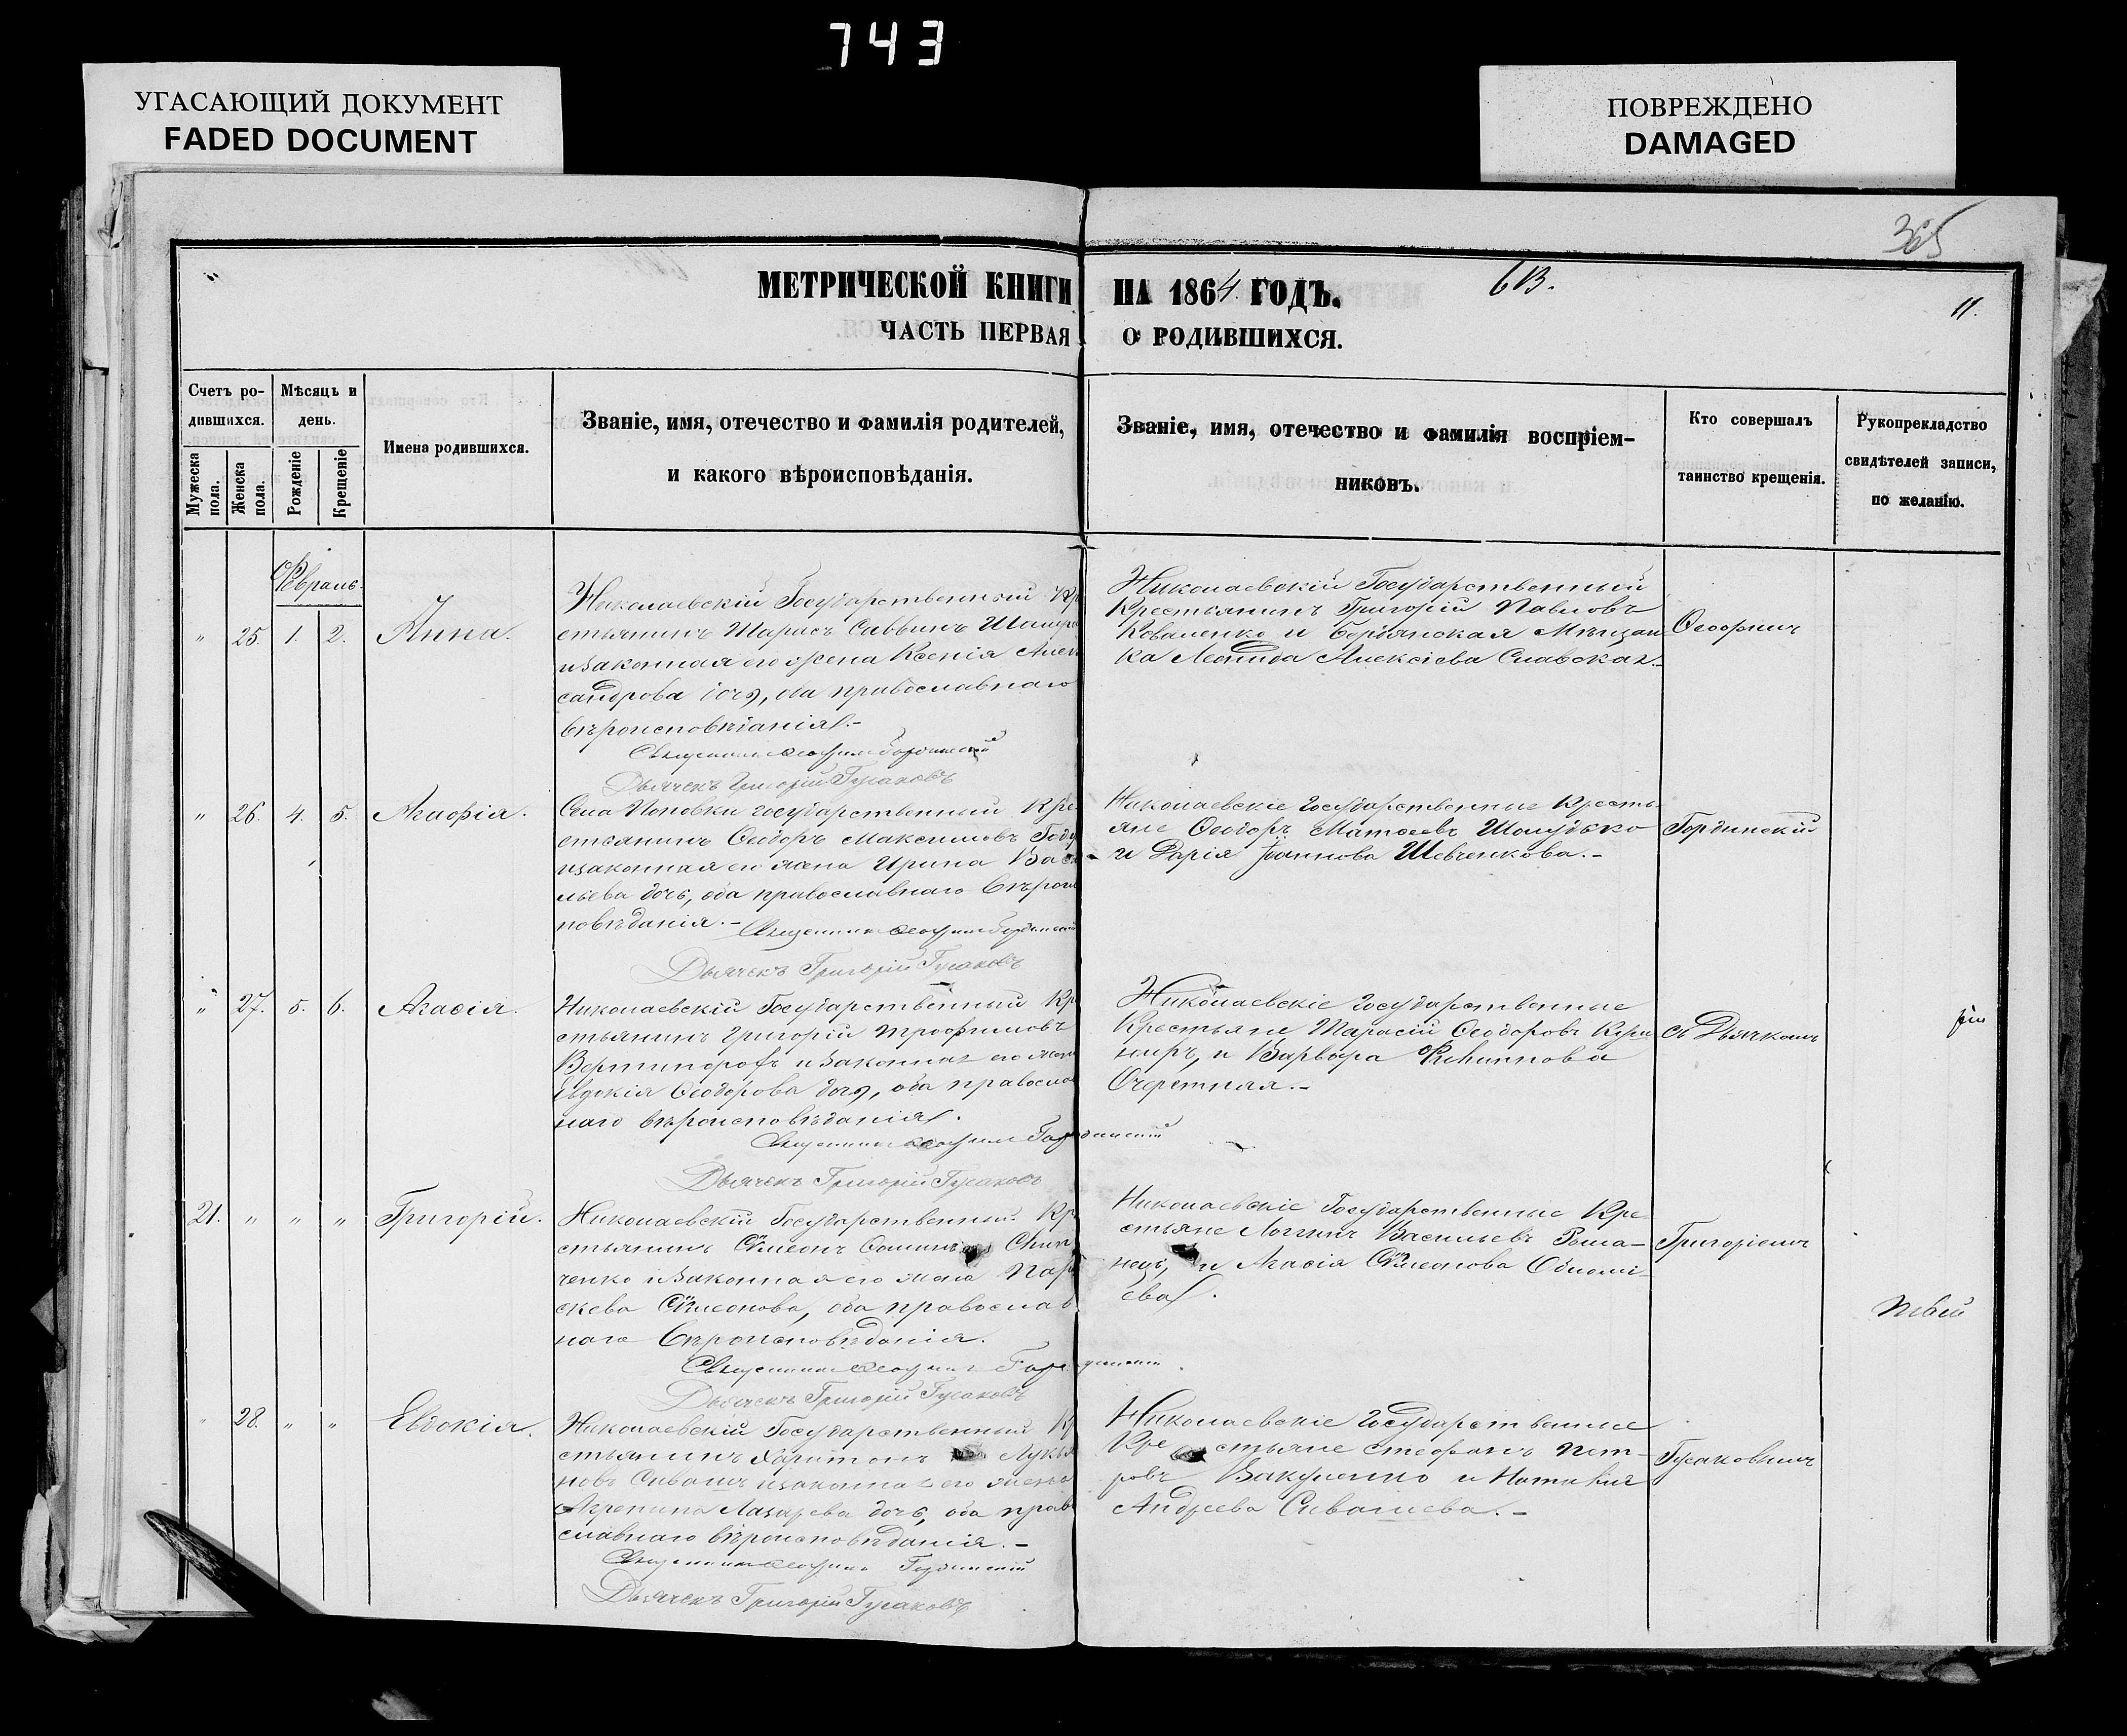 743
УГАСАЮЩИЙ ДОКУМЕНТ
FADED DOCUMENT
ПОВРЕЖДЕНО
DAMAGED
365
МЕТРИЧЕСКОЙ КНИГИ НА 1864 ГОДЪ.
613.
11.
ЧАСТЬ ПЕРВАЯ О РОДИВШИХСЯ.
Счетъ ро-
дившихся.
Мужеска пола.
Женска пола.
Мѣсяцъ и
день.
Рожденіе
Крещеніе
Имена родившихся.
Званіе, имя, отечество и фамилія родителей,
и какого вѣроисповѣданія.
Званіе, имя, отечество и фамилія воспріем-
никовъ.
Кто совершалъ
таинство крещенія.
Рукопрекладство
свидѣтелей записи,
по желанію.
Февраль.
" 25. 1. 2. Анна.
Николаевскій Государственный Кр
стьянинъ Тарасъ Саввинъ
и законная его жена Ксенія Алек
сандрова дочь, оба православнаго
вѣроисповѣданія.-
Священникъ Ѳеофилъ Гординскій
Дьячекъ Григорій Гусаковъ
Николаевскій Государственный
Крестьянинъ Григорій Павловъ
Коваленко и Бердянская Мѣщан
ка Леонида Алексіева Славская.-
Ѳеофилъ
" 26. 4. 5. Агафія.
Села Поповки государственный Кре
стьянинъ Ѳеодоръ Максимовъ
и законная его жена Ирина Васи
льева дочь, оба православнаго вѣроис
повѣданія.-
Священникъ Ѳеофилъ Гординскій
Дьячекъ Григорій Гусаковъ
Николаевскіе государственные Кресть-
яне Ѳеодоръ Матѳеевъ Шолудько
и Дарія Іоаннова Шевченкова.-
Гординскій
" 27. 5. 6. Агаѳія.
Николаевскій Государственный Кр
стьянинъ Григорій Трофимовъ
и законная его жена
Евдокія Ѳеодорова дочь, оба православ
наго вѣроисповѣданія.
Священникъ Ѳеофилъ Гординскій
Дьячекъ Григорій Гусаковъ
Николаевскіе государственные
Крестьяне Тарасій Ѳеодоровъ
и Варвара
Очеретная.-
съ Дьячкомъ
21. " " " Григорій.
Николаевскій Государственный Кр
стьянинъ Сѵмеонъ
ченко и законная его жена Пара
скева Сѵмеонова, оба православ
наго вѣроисповѣданія.
Священникъ Ѳеофилъ Гординскій.
Дьячекъ Григорій Гусаковъ
Николаевскіе Государственные Кре-
стьяне Логгинъ Васильевъ Рома-
нецъ, и Агаѳія Сѵмеонова
ева.
Григоріемъ
" 28. " " Евдокія.
Николаевскій Государственный Кр
стьянинъ Харитонъ Лукья
новъ Сивашъ и законная его жена
Агрепина Лазарева дочь, оба право
славнаго вѣроисповѣданія.-
Священникъ Ѳеофилъ Гординскій
Дьячекъ Григорій Гусаковъ
Николаевскіе государственные
Крестьяне Стефанъ Пет-
ровъ Вакуленко и Наталія
Андреева Сивашева.-
Гусаковымъ